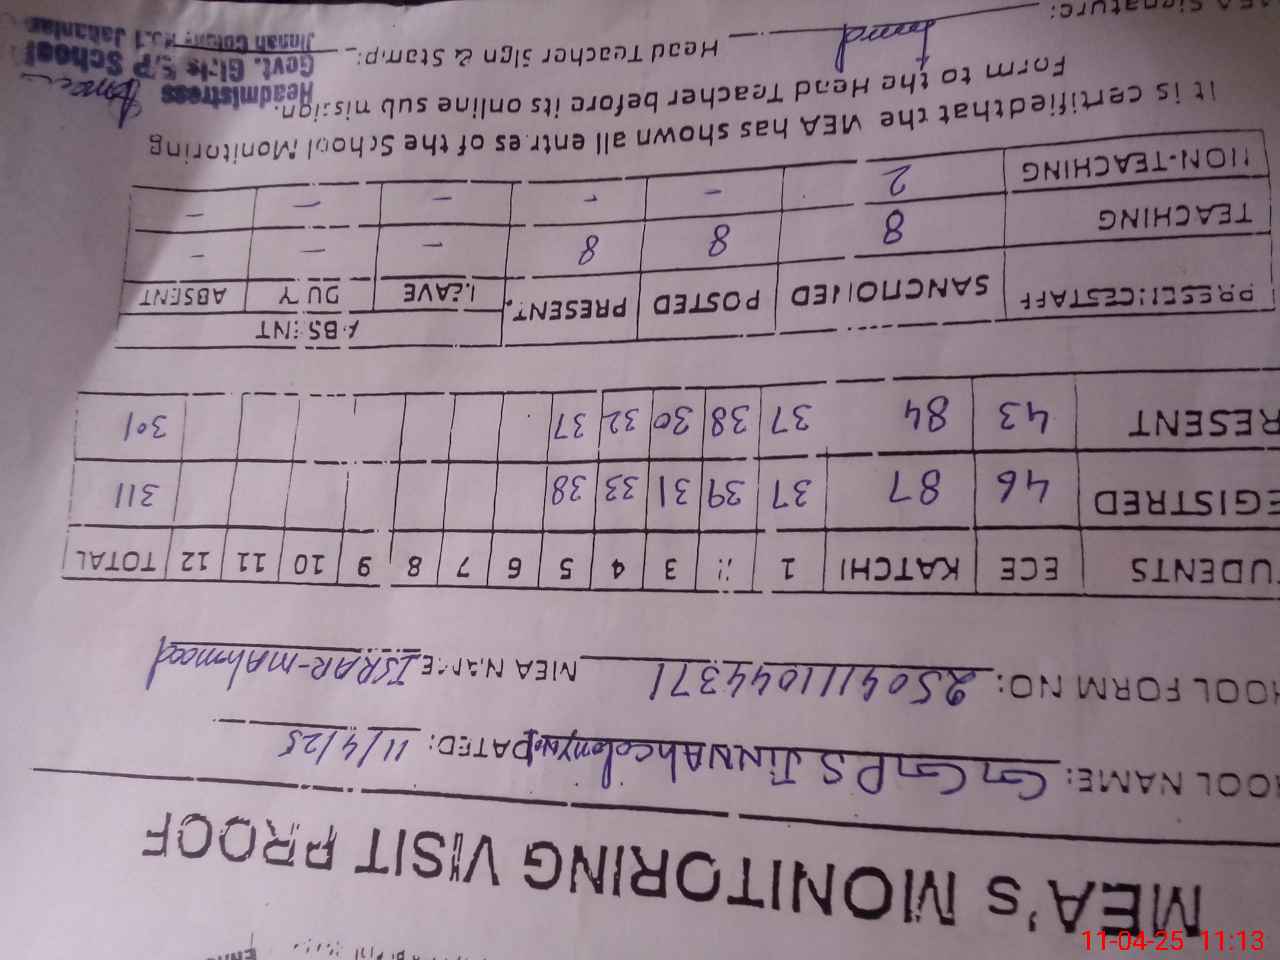 MEA's MONITORING VISIT PROOF
HOOL NAME: GGPS JiNNAhcolony No1 DATED: 11/4/25
HOOL FORM NO: 250411104371 MEA NAME ISRAR-mAhmood
UDENTS ECE KATCHI 1 2 3 4 5 6 7 8 9 10 11 12 TOTAL
EGISTRED 46 87 37 39 31 33 38 311
RESENT 43 84 37 38 30 32 37 301
ABSENT
PRESENCE STAFF SANCTIONED POSTED PRESENT. LEAVE DUTY ABSENT
TEACHING 8 8 8 - - -
NON-TEACHING 2 - - - - -
It is certified that the MEA has shown all entries of the School Monitoring
Form to the Head Teacher before its online submission.
Signature: Head Teacher Sign & Stamp:
Headmistress
Govt. Girls P School
Jinnah Colony No.1
11-04-25 11:13